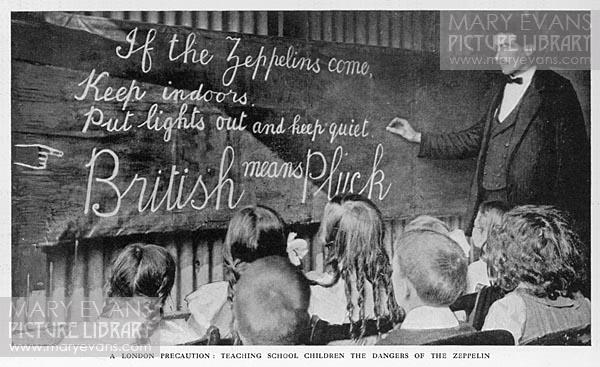 MARY EVANS
PICTURE LIBRARY
www.maryevans.com
If the Zeppelins come,
Keep indoors.
Put lights out and keep quiet.
British means Pluck
MARY EVANS
PICTURE LIBRARY
www.maryevans.com
A LONDON PRECAUTION: TEACHING SCHOOL CHILDREN THE DANGERS OF THE ZEPPELIN